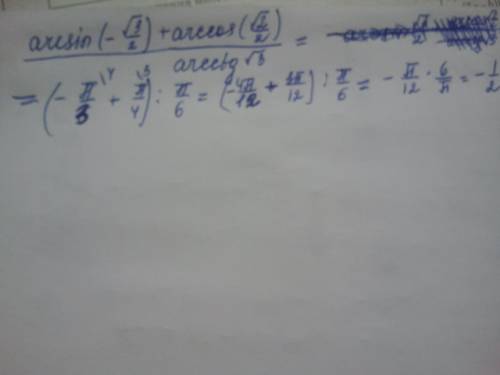 (arcsin(-√3/2) + arccos(√2/2)) / arcctg √3 =
= (-π/3 \4 + π/4 \3) : π/6 = (-4π/12 + 3π/12) : π/6 = -π/12 · 6/π = -1/2